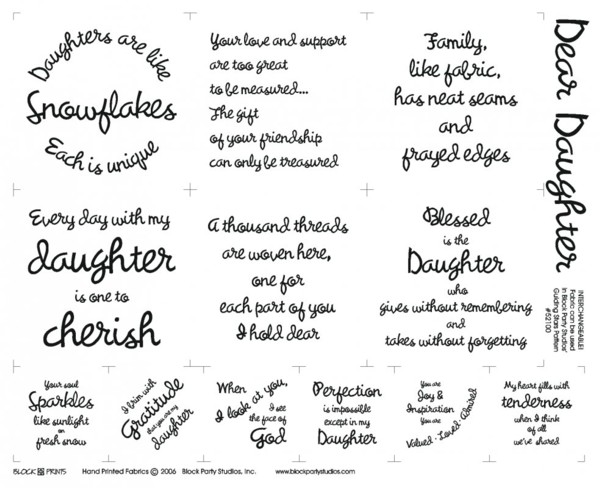 Daughters are like
Snowflakes
Each is unique
Your love and support
are too great
to be measured...
The gift
of your friendship
can only be treasured
Family,
like fabric,
has neat seams
and
frayed edges
Dear Daughter
INTERCHANGEABLE!
Fabric can be used
in Block Party Studios'
Guiding Stars Pattern
#52100
Every day with my
daughter
is one to
cherish
A thousand threads
are woven here,
one for
each part of you
I hold dear
Blessed
is the
Daughter
who
gives without remembering
and
takes without forgetting
Your soul
Sparkles
like sunlight
on
fresh snow
I brim with
Gratitude
that you are my
daughter
When
I look at you,
I see
the face of
God
Perfection
is impossible
except in my
Daughter
You are
Joy &
Inspiration
You are
Valued · Loved · Admired
My heart fills with
tenderness
when I think
of all
we've shared
BLOCK PRINTS Hand Printed Fabrics © 2006 Block Party Studios, Inc. www.blockpartystudios.com